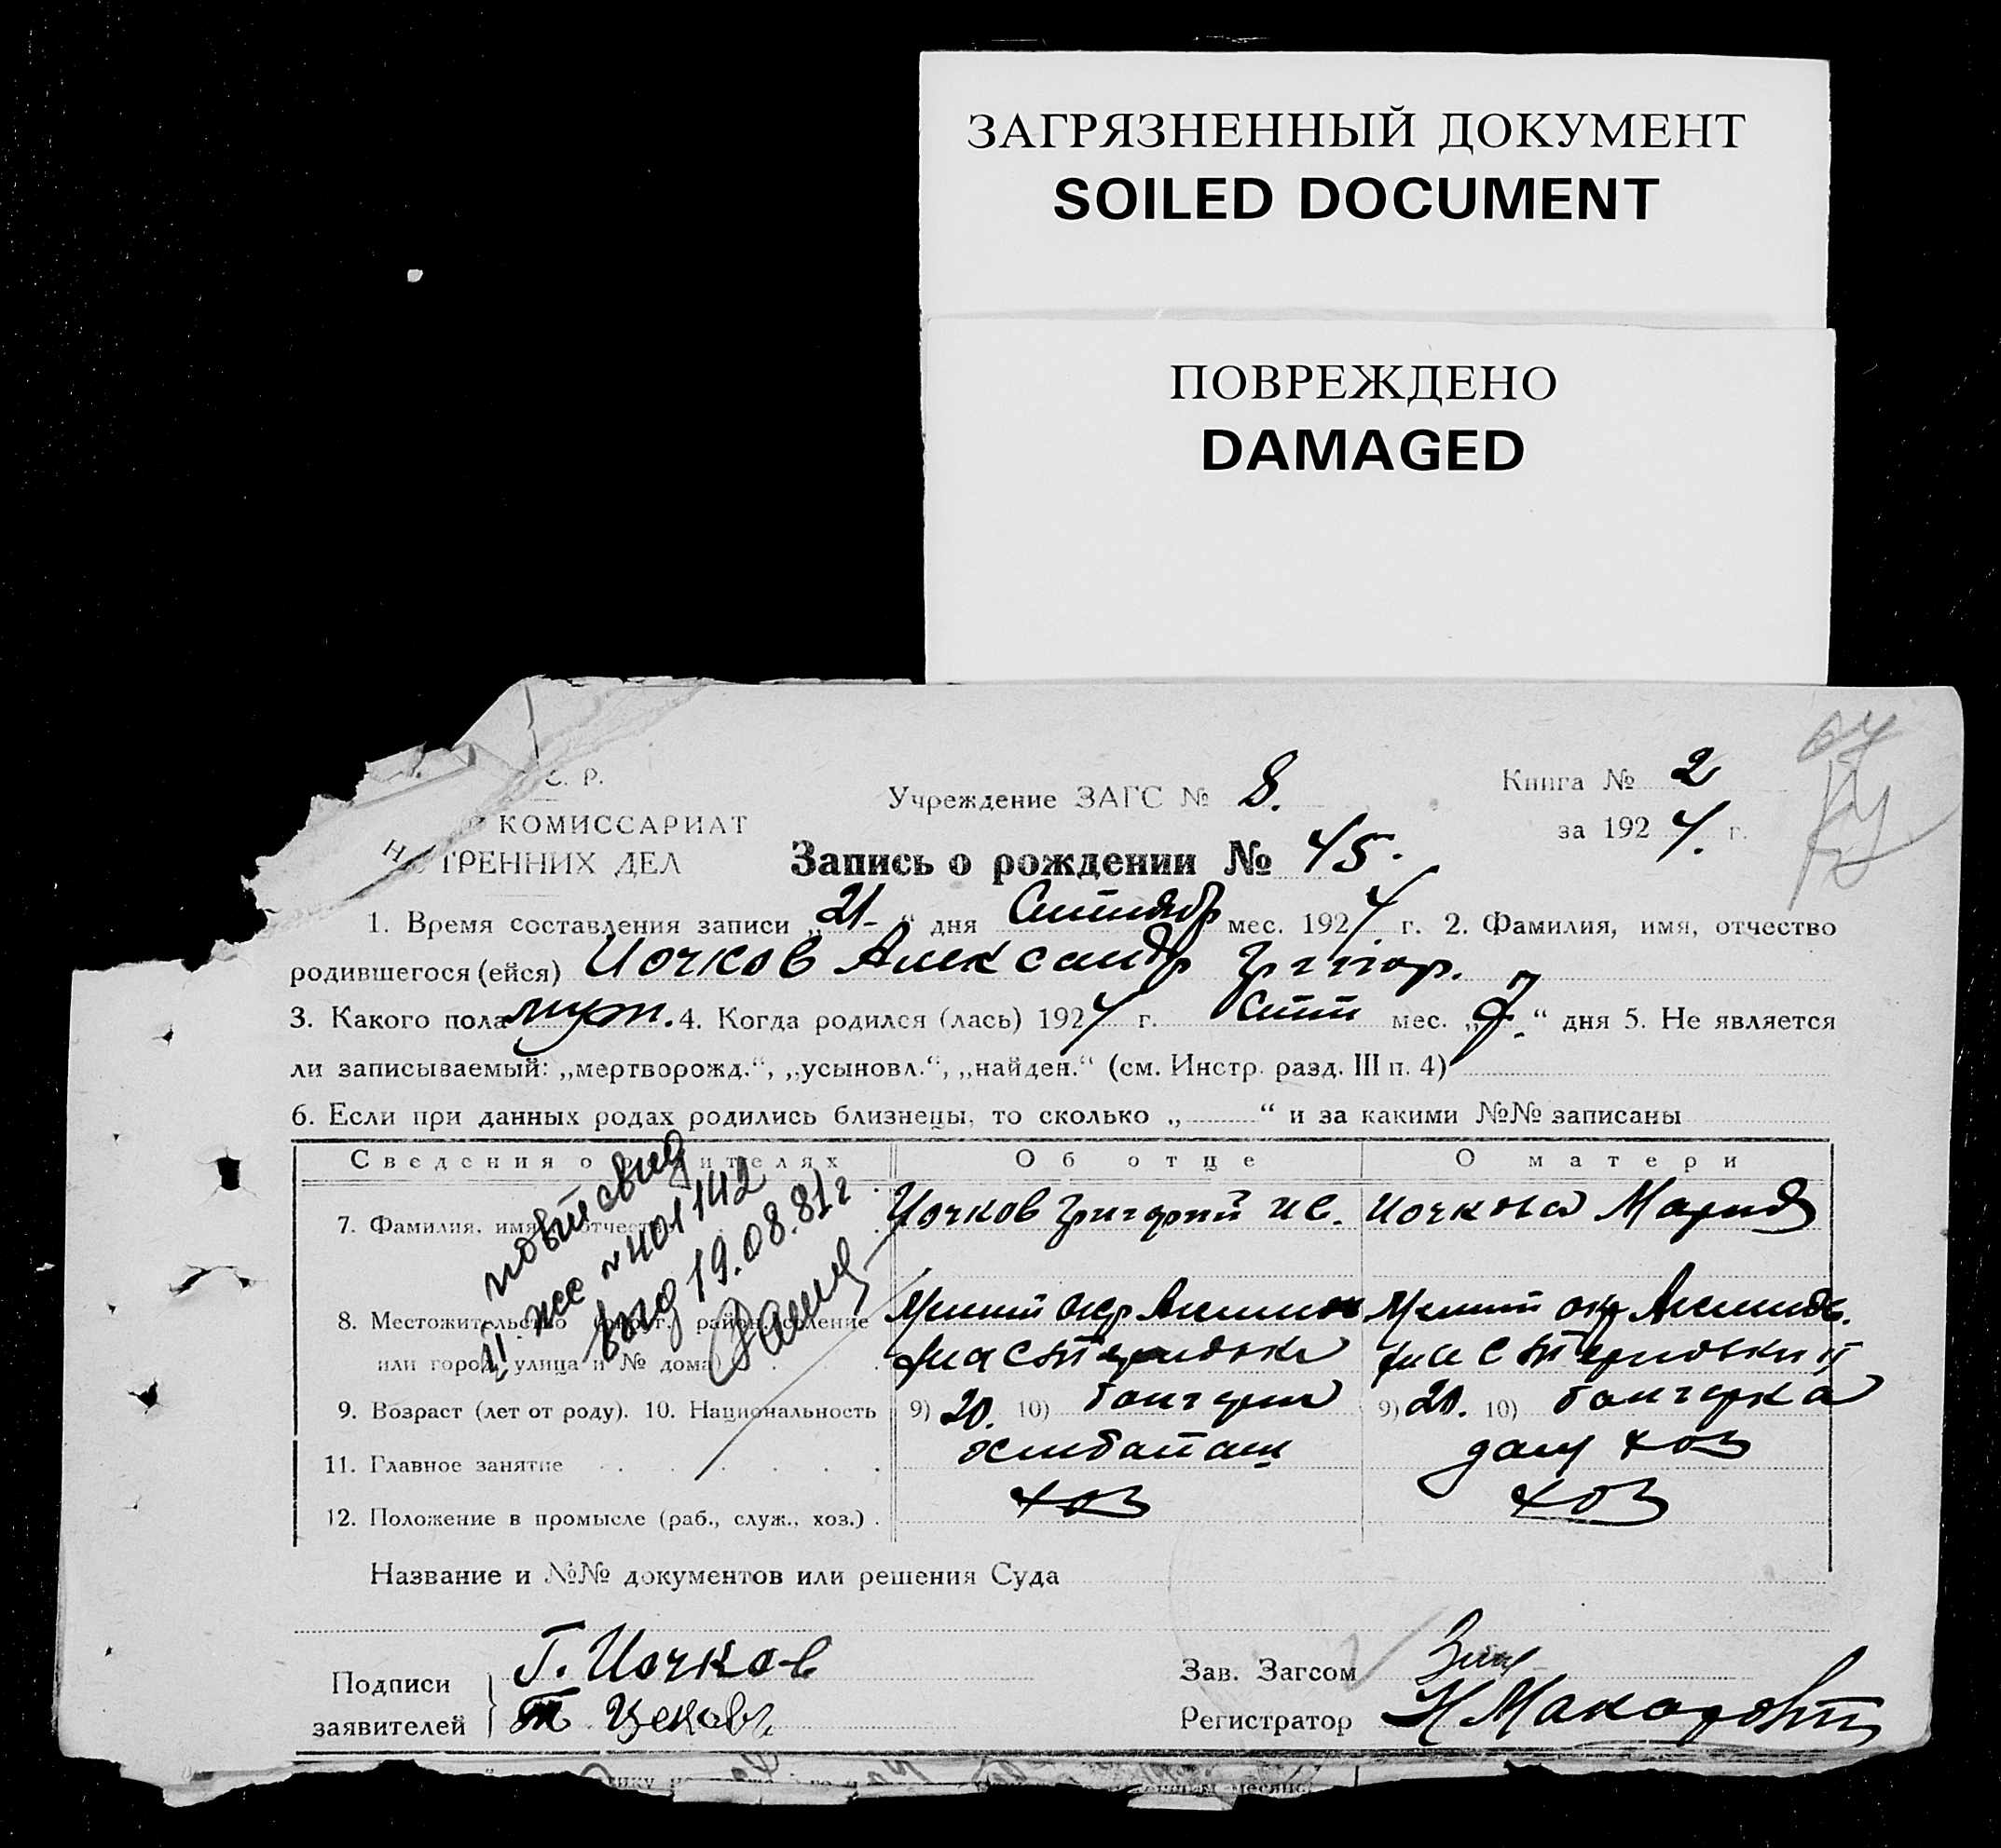 ЗАГРЯЗНЕННЫЙ ДОКУМЕНТ
SOILED DOCUMENT
ПОВРЕЖДЕНО
DAMAGED
С. Р.
КОМИССАРИАТ
ТРЕННИХ ДЕЛ
Учреждение ЗАГС № 8.
Книга № 2
за 1924. г.
Запись о рождении № 45.
1. Время составления записи „21-“ дня Сентябр мес. 1924 г. 2. Фамилия, имя, отчество
родившегося (ейся) Иочков Александр Григор.
3. Какого пола муж. 4. Когда родился (лась) 1924 г. Сент мес. „7.“ дня 5. Не является
ли записываемый: „мертворожд.“, „усыновл.“, „найден.“ (см. Инстр. разд. III п. 4)
6. Если при данных родах родились близнецы, то сколько „ “ и за какими №№ записаны
Сведения о родителях Об отце О матери
7. Фамилия, имя, отчество Иочков Григорий Ив. Иочкова Мария
8. Местожительство район, селение
или город, улица и № дома
9. Возраст (лет от роду). 10. Национальность 9) 20. 10) болгарин 9) 20. 10) болгарка
11. Главное занятие хлебопаш дом хоз
12. Положение в промысле (раб., служ., хоз.) . хоз хоз
повт свид
II жс № 401142
выд 19.08.81г
Название и №№ документов или решения Суда
Подписи заявителей
Г. Иочков
Зав. Загсом
Регистратор